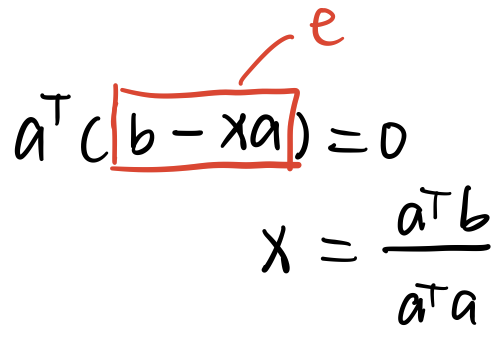 e
aᵀ(b − xa) = 0
x = aᵀb / aᵀa